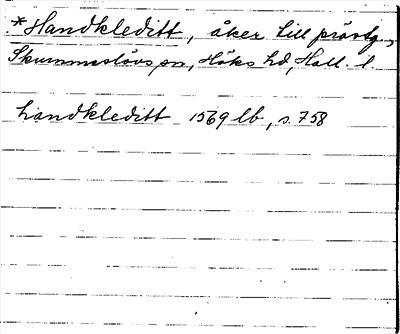 * Handkleditt, åker till prästg.,
Skummeslövs sn, Höks hd, Hall. l.
handkleditt 1569 lb, s. 758